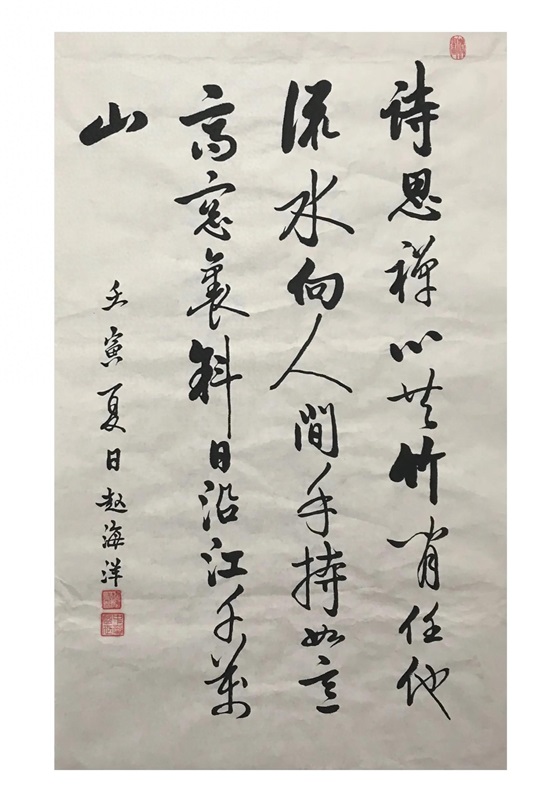 诗思禅心共竹閒任他
流水向人間手持如意
高窓裏斜日沿江千萬
山
壬寅夏日赵海洋